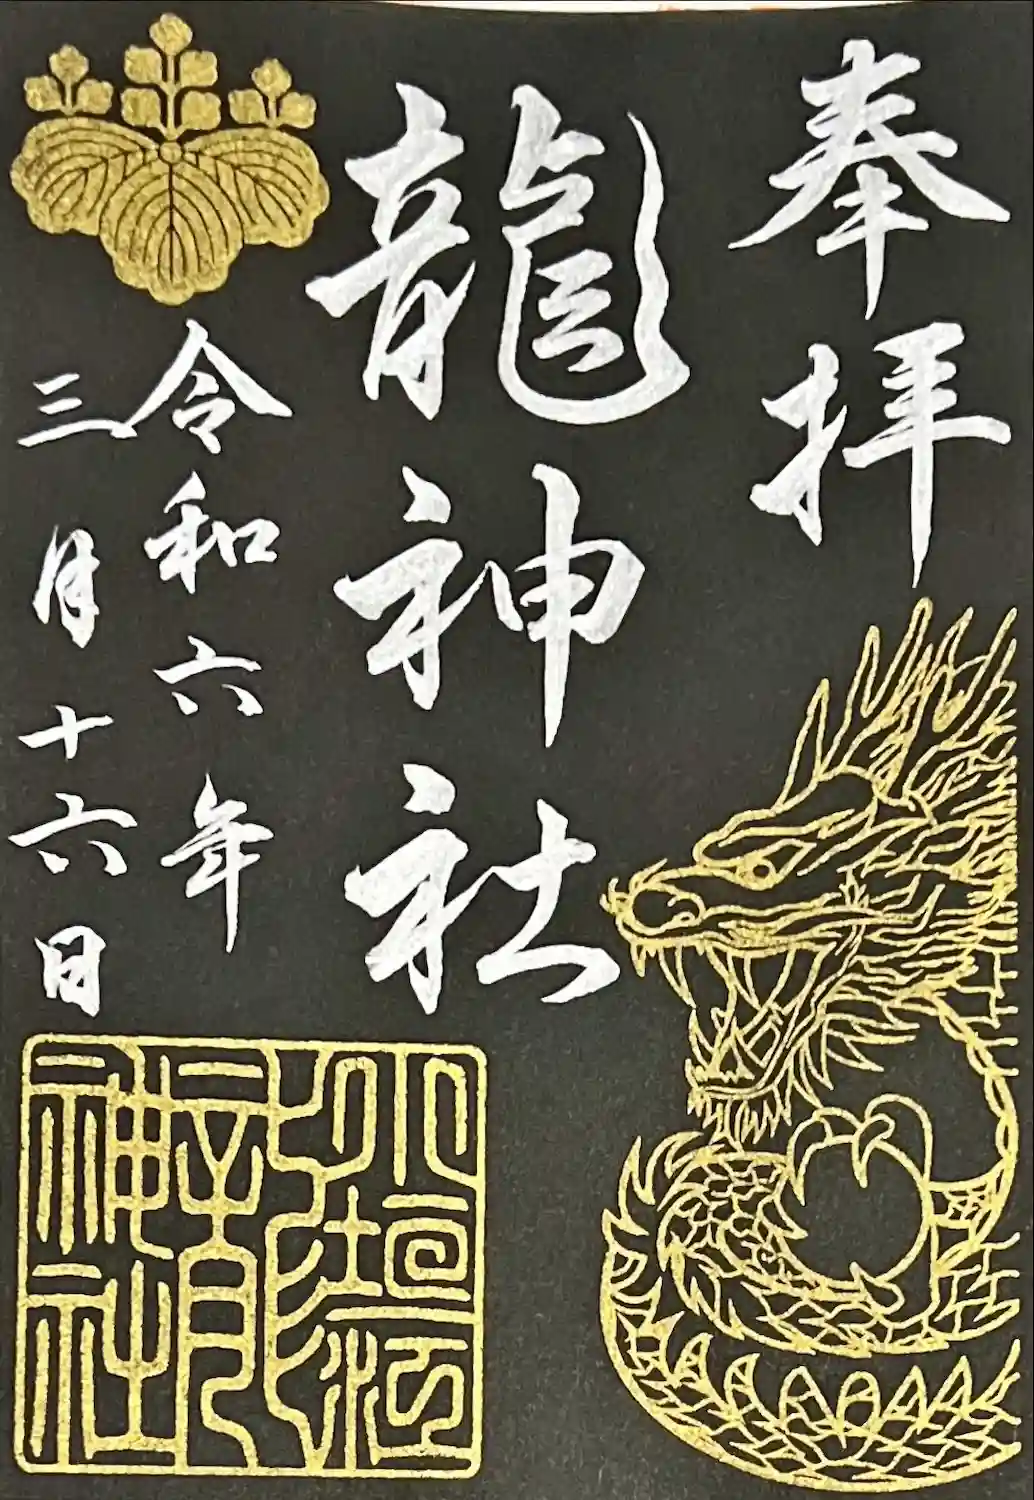 奉拝
龍神社
令和六年
三月十六日